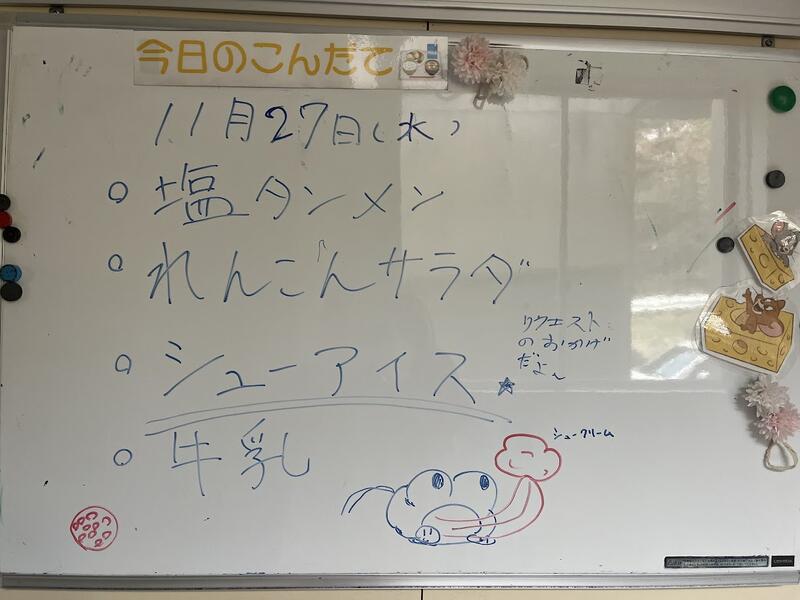 今日のこんだて
11月27日(水)
○ 塩タンメン
○ れんこんサラダ
○ シューアイス★
リクエスト
のおかげ
だよ〜
○ 牛乳
シュークリーム